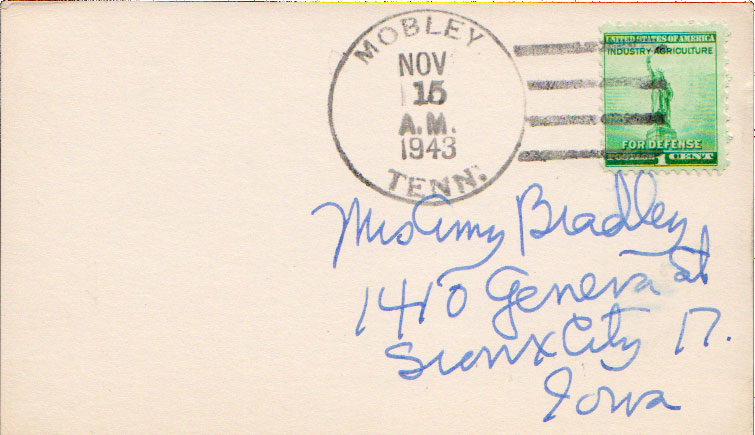 MOBLEY
NOV
15
A.M.
1943
TENN.
UNITED STATES OF AMERICA
INDUSTRY AGRICULTURE
FOR DEFENSE
1 CENT
Mrs Amy Bradley
1410 Geneva St
Sioux City 17.
Iowa